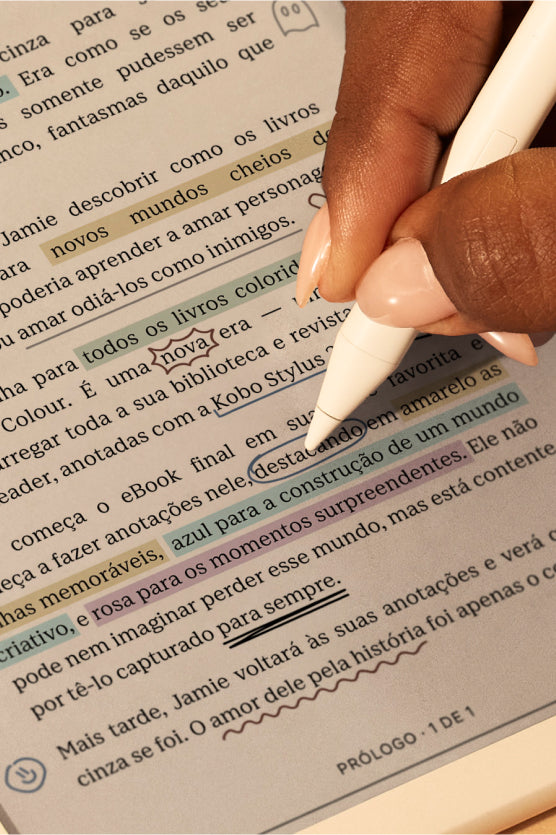 cinza para s
. Era como se os seu
s somente pudessem ser
nco, fantasmas daquilo que
Jamie descobrir como os livros
ara novos mundos cheios de
poderia aprender a amar personag
ou amar odiá-los como inimigos.
ha para todos os livros colorid
Colour. É uma nova era —
rregar toda a sua biblioteca e revista
eader, anotadas com a Kobo Stylus
começa o eBook final em sua favorita e
eça a fazer anotações nele, destacando em amarelo as
nhas memoráveis, azul para a construção de um mundo
criativo, e rosa para os momentos surpreendentes. Ele não
pode nem imaginar perder esse mundo, mas está contente
por tê-lo capturado para sempre.
Mais tarde, Jamie voltará às suas anotações e verá
cinza se foi. O amor dele pela história foi apenas o co
PRÓLOGO · 1 DE 1